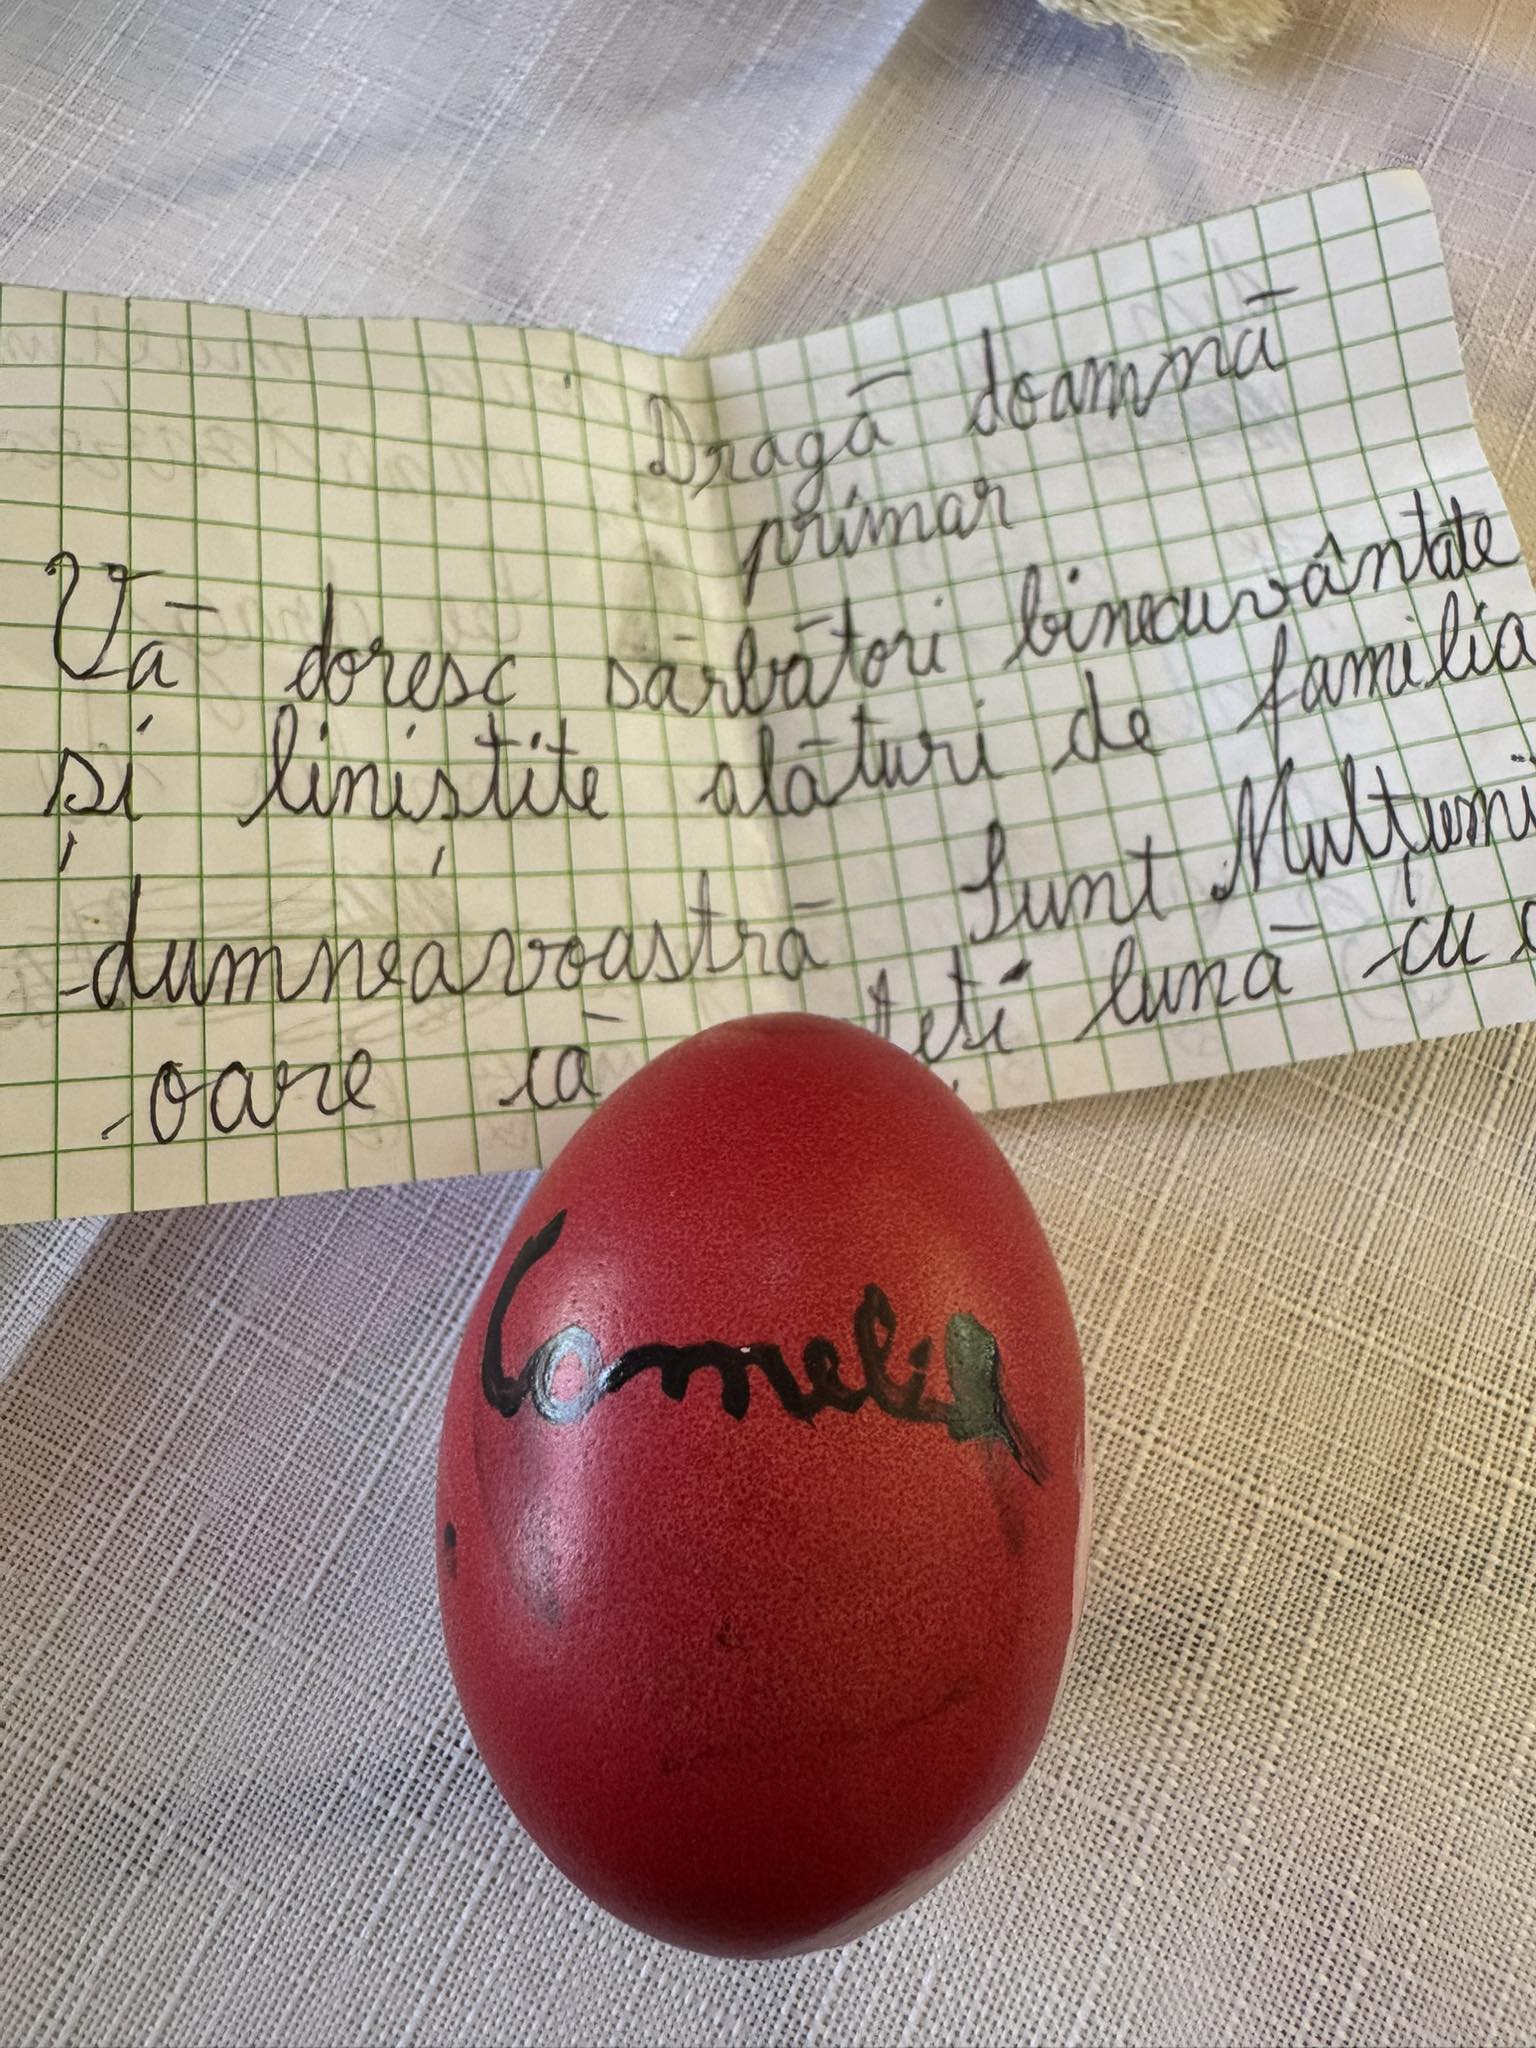 Dragă doamnă
primar
Vă doresc sărbători binecuvântate
și liniștite alături de familia
dumneavoastră Sunt Mulțumi
-oare că teți lună cu
Cornelia